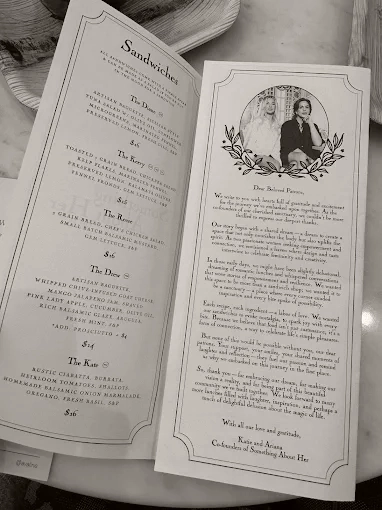 Sandwiches
ALL SANDWICHES COME WITH A
The Dana
ARTISAN BAGUETTE,
OLIVE OIL
MICROGREENS,
PRESERVED LEMON,
$16
The Kerry
TOASTED 7 GRAIN BREAD,
KELP PEARLS, MARINATED
PRESERVED LEMON,
FENNEL FRONDS, GEM LETTUCE, S&P
The Rome
7 GRAIN BREAD, CHEF'S CHICKEN SALAD,
SMALL BATCH BALSAMIC MUSTARD,
GEM LETTUCE, S&P
$16
The Drew
ARTISAN BAGUETTE,
WHIPPED CHIVE-INFUSED GOAT CHEESE,
MANGO JALAPEÑO JAM, SPECK,
PINK LADY APPLE, CUCUMBER, OLIVE OIL,
RICH BALSAMIC GLAZE, ARUGULA,
FRESH MINT, S&P
*ADD: PROSCIUTTO + $4
$24
The Kate
RUSTIC CIABATTA, BURRATA,
HEIRLOOM TOMATOES, SHALLOTS,
HOMEMADE BALSAMIC ONION MARMALADE,
OREGANO, FRESH BASIL, S&P
$16
Dear Beloved Patrons,
We write to you with hearts full of gratitude and excitement
for the journey we've embarked upon together. As the
co-founders of our cherished sanctuary, we couldn't be more
thrilled to express our deepest thanks.
Our story began with a shared dream—a dream to create a
space that not only nourishes the body but also uplifts the
spirit. As two passionate women seeking empowerment and
connection, we envisioned a haven where
to celebrate femininity and creativity.
In those early days, we might have been slightly delusional,
dreaming of
of empowerment and resilience. We wanted
this space to be more than a sandwich shop; we wanted it to
be a sanctuary—a place where every corner exuded
inspiration and every bite spoke of possibility.
Each recipe, each ingredient—a labor of love. We wanted
our sandwiches to evoke nostalgia, to spark joy with every
bite. Because we believe that food isn't just sustenance, it's a
form of connection, a way to celebrate life's simple pleasures.
But none of this would be possible without you, our dear
patrons. Your support, your smiles, your shared moments of
laughter and reflection—they fuel our passion and remind
us why we embarked on this journey in the first place.
So, thank you—for embracing our dream, for making our
vision a reality, and for being part of this beautiful
community we've built together. We look forward to many
more lunches filled with laughter, inspiration, and perhaps a
touch of delightful delusion about the magic of life.
With all our love and gratitude,
Katie and Ariana
Co-founders of Something About Her